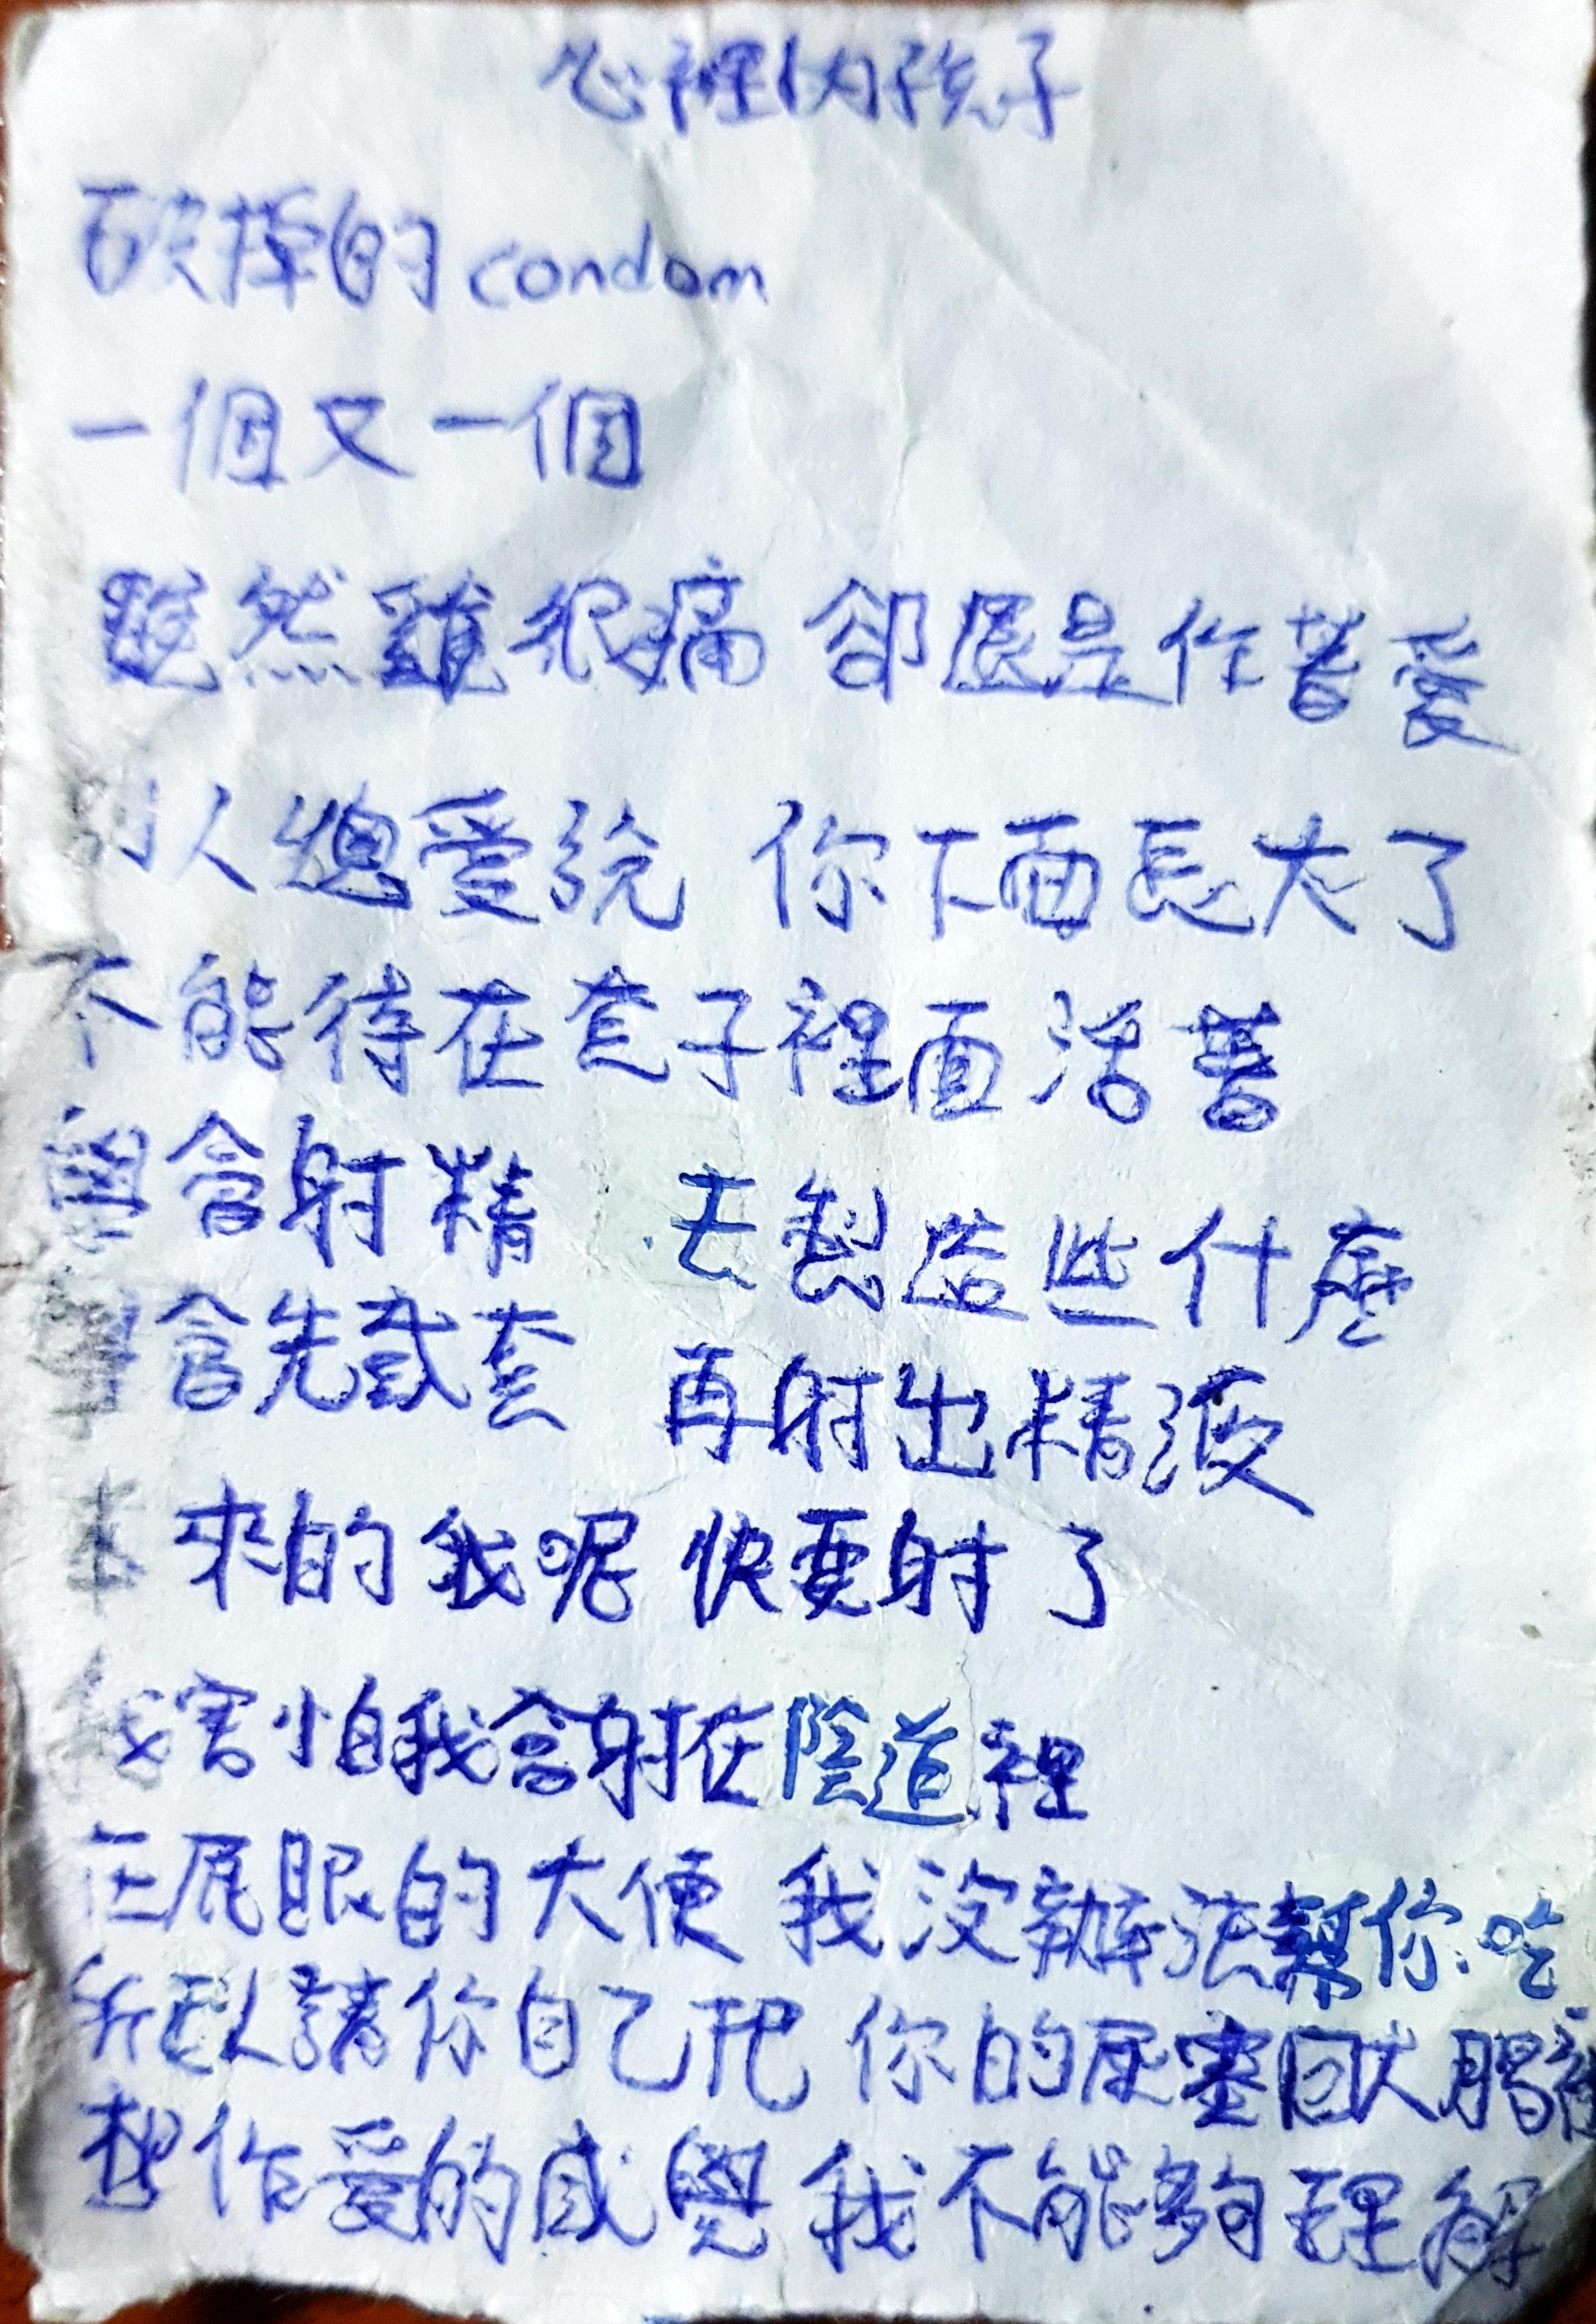 心裡的孩子
破掉的 condom
一個又一個
雖然雞很痛 卻還是作著愛
別人總愛說 你下面長大了
不能待在套子裡面活著
學會射精 去製造些什麼
學會先戴套 再射出精液
本來的我呢 快要射了
我害怕我會射在陰道裡
在屁眼的大便 我沒辦法幫你吃
所以請你自己把 你的屎塞回大腸裡
想作愛的感覺 我不能夠理解